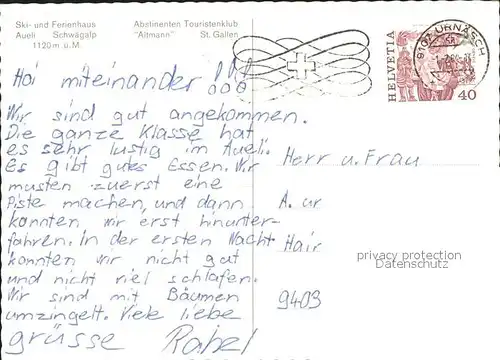 Ski- und Ferienhaus
Aueli Schwägalp
1120 m ü.M.
Abstinenten Touristenklub
"Altmann" St. Gallen
9107 URNÄSCH
HELVETIA
40
Hoi miteinander !!!
Wir sind gut angekommen.
Die ganze Klasse hat
es sehr lustig im Aueli.
Es gibt gutes Essen. Wir
musten zuerst eine
Piste machen, und dann
konnten wir erst hinunter-
fahren. In der ersten Nacht
konnten wir nicht gut
und nicht viel schlafen.
Wir sind mit Bäumen
umzingelt. Viele liebe
grüsse Rahel
Herr u. Frau
A. ur
Hair
9403
privacy protection
Datenschutz